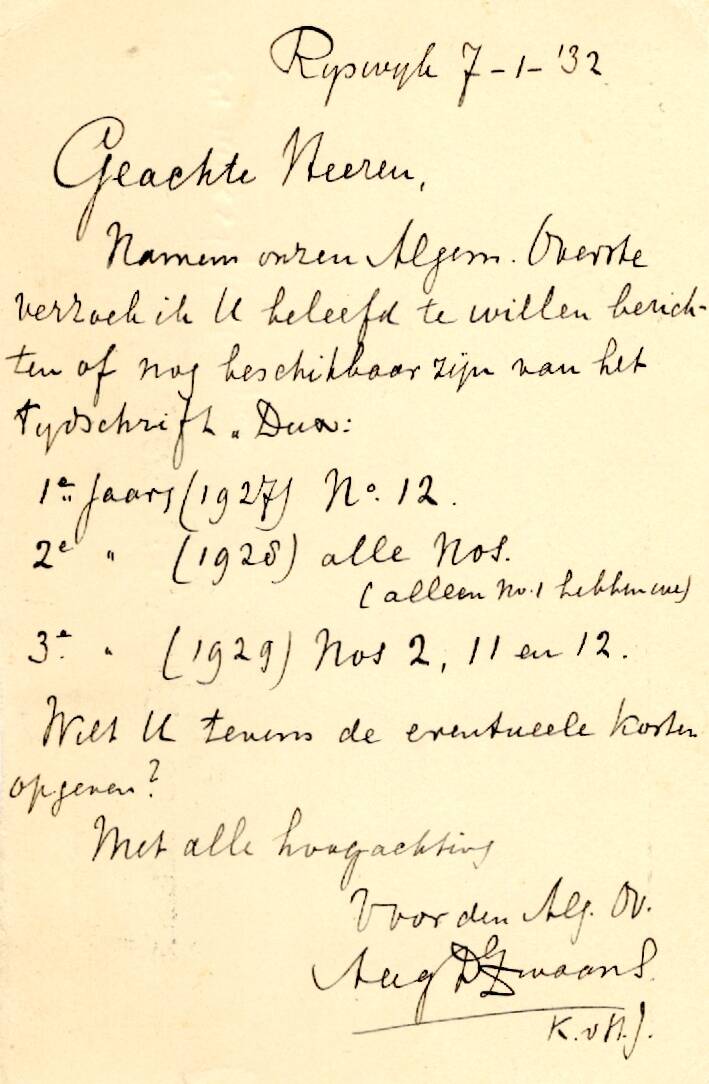 Ryswyk 7-1-'32
Geachte Heeren,
Namens onzen Algem. Overste
verzoek ik U beleefd te willen berich-
ten of nog beschikbaar zijn van het
tydschrift „Dux:
1e Jaarg (1927) No. 12.
2e " (1928) alle Nos.
(alleen No. 1 hebben we)
3e " (1929) Nos 2, 11 en 12.
Wilt U tevens de eventueele kosten
opgeven?
Met alle hoogachting
Voor den Alg. Ov.
Aug
K. v H. J.